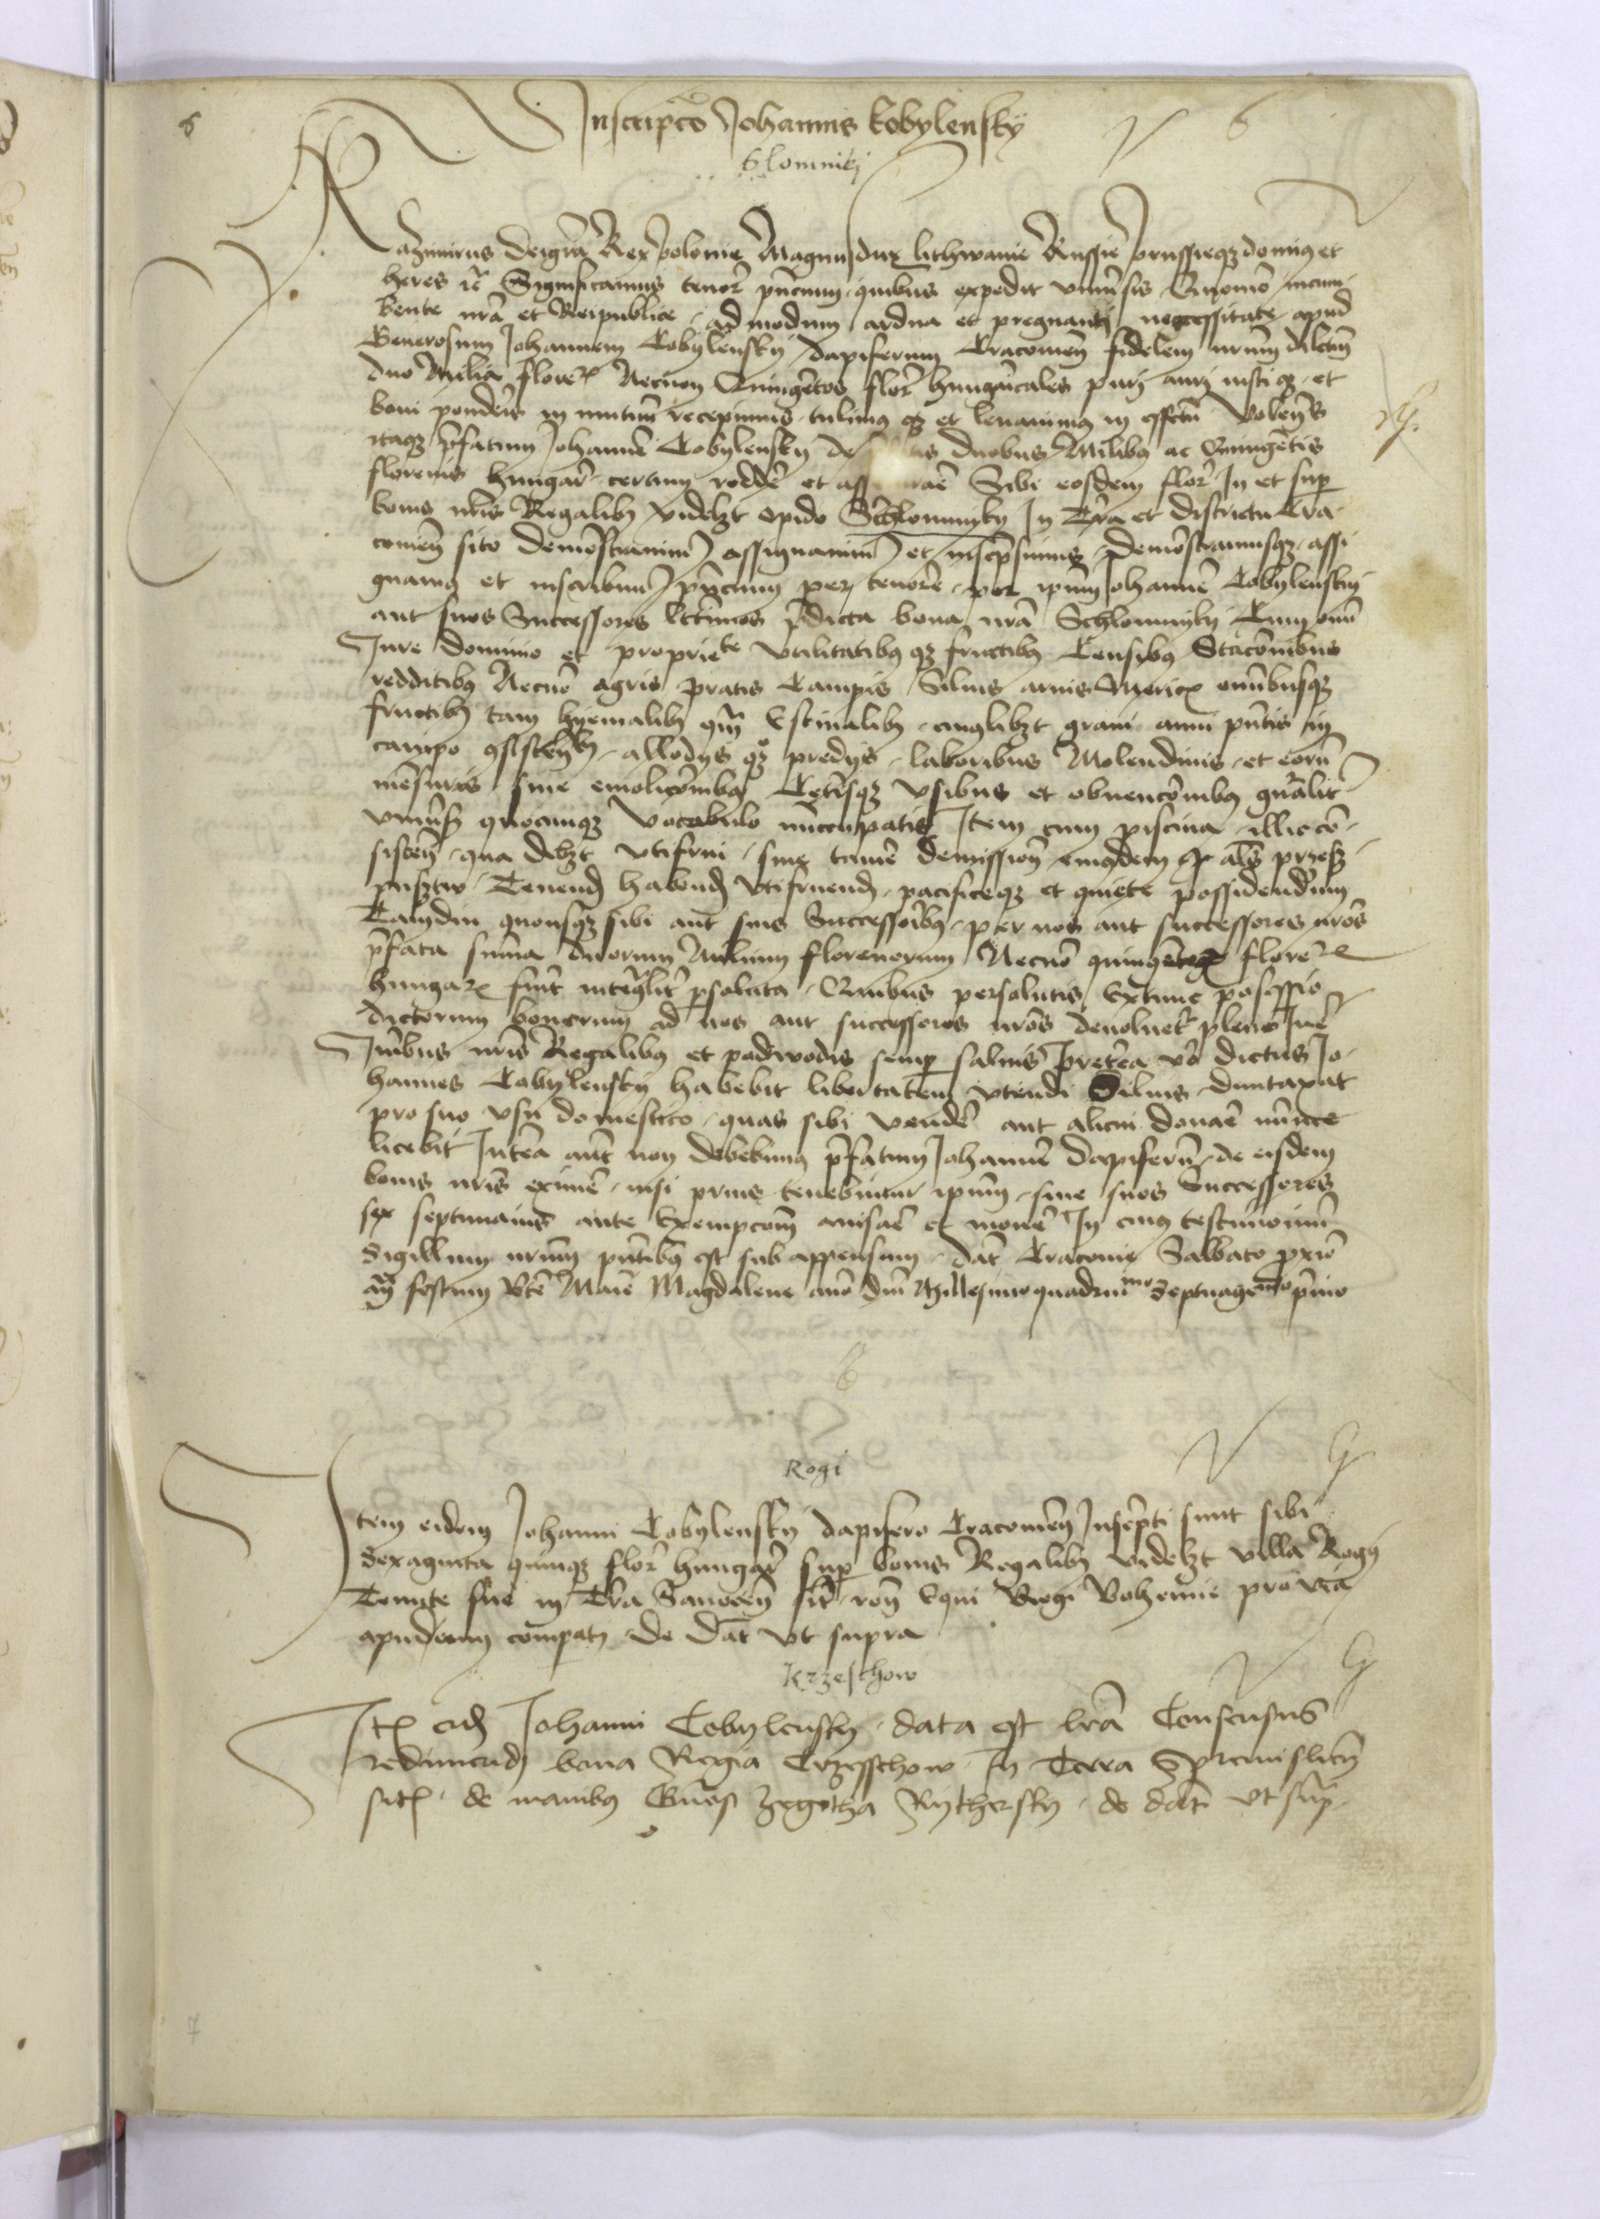 6
Inscripco Johannis Kobylensky
6
Slomniki
Kazimirus deigra Rex polonie Magnus dux lithwanie Russie prussieqz dominus et
heres rc Significamus tenore pncium quibus expedit univsis Quomo incum
bente nra et Reipublice admodum ardua et pregnanti necessitate apud
Generosum Johannem Cobylensky dapiferum Cracouien fidelem nrum dilcm
duo Milia flore Necnon Quingetos flor hungaricales puri auri justiqz et
boni ponderis in mutuum recepimus tulimus qz et levavimus in effctu Volens
itaqz pfatum Johanne Cobylensky de duobus Milibus ac Quingetis
florenis hungar certum redde et Sibi eosdem flor In et sup
bonis nris Regalibus videlzt opido Schlomnyky In Tra et districtu Cra
couien sito demostravimus assignavimus et inscpsimus demostramusqz assi
gnamus et inscribimus pncium per tenore per ipum Johanne Cobylensky
aut suos Successores ltimos pdicta bona nra Schlomnyky Cum omni
Jure dominio et propriete Utilitatibus qz fructibus Censibus Stacionibus
redditibus Necno agris pratis Campis Silvis Mericis omnibusqz
fructibus tam hyemalibus qm Estivalibus cuiuslibzt grani anni pntis in
campo qsistentibus allodys qz predys laboribus Molendinis et eorum
mesuris sive emolicionibus Ceterisqz usibus et obvencionibus gnalit
univsis quocunqz vocabulo nuccupatis Item cum piscina illic co
sisten qua debzt utifrui sine tame demission eiusdem al
Tenend habend Utifruend pacificeqz et quiete possidendum
Tamdiu quousqz sibi aut suis Successoribus per nos aut successores nros
pfata suma duorum Milium florenorum Necno quingetos flore
hungar fuit integralit psoluta Quibus persolutis extunc posessio
dictorum bonorum ad nos aut successores nros devoluet pleno Jure
Juribus nris Regalibus et podwodis semp salvis Preterea vo dictus Jo
hannes Cobylensky habebit libertatem utendi Silvis duntaxat
pro suo usu domestico quas sibi vende aut alicui donare minime
licebit Interea aut non debebimus pfatum Johanne dapiferu de eisdem
bonis nris exime nisi prius tenebimur ipum sive suos Successores
sex septimanis ante Exempcom avisare et mone In cuius testimonium
Sigillum nrum pntibus est subappensum Dat Cracovie Sabbato proxio
an festum Bte Marie Magdalene ano dni Millesimo quadrinmo Septuagesimo pimo
6
Rogi
Item eidem Johanni Cobylensky dapifero Cracouien Inscpti sunt sibi
Sexaginta quinqz flor hungar sup bonis Regalibus videlzt villa Rogy
Tenute sue in Tra Sanocen sit ron equi Regi Bohemie pro via
apud eum compati de Dat ut supra
Krzeschow
Ite eid Johanni Cobylensky data est lra Consensus
redimend bona Regia Crzesschow In Terra Premislien
sit de manibus Gnosi Zegotha Rythersky de dat ut sup
7